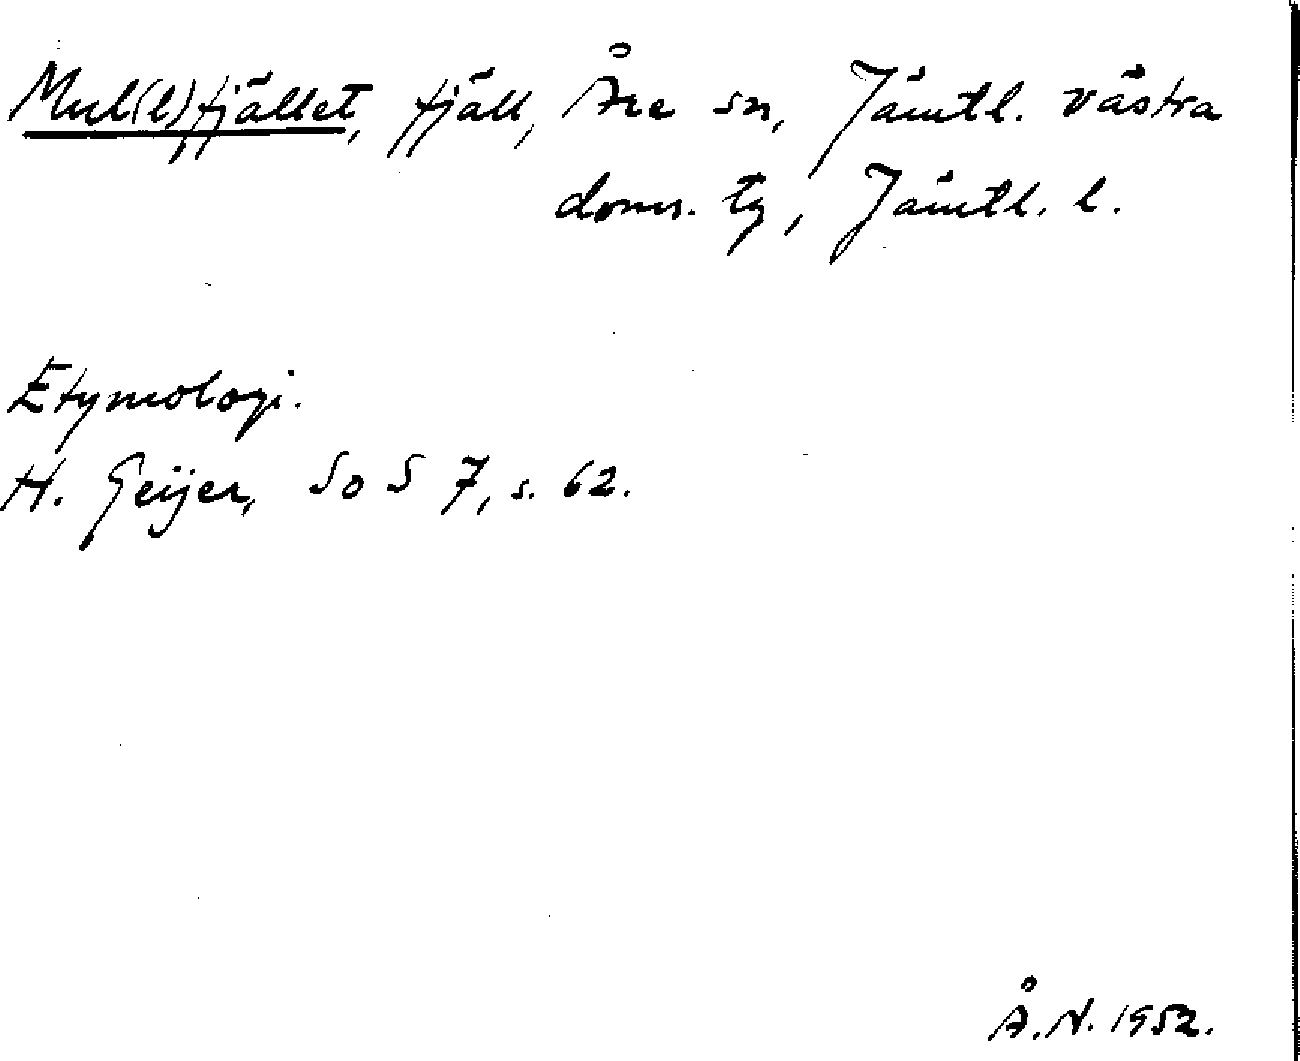 Mul(l)fjället, fjäll, Åre sn, Jämtl. västra
doms. tg, Jämtl. l.
Etymologi.
H. Geijer, SoS 7, s. 62.
Å.N. 1952.